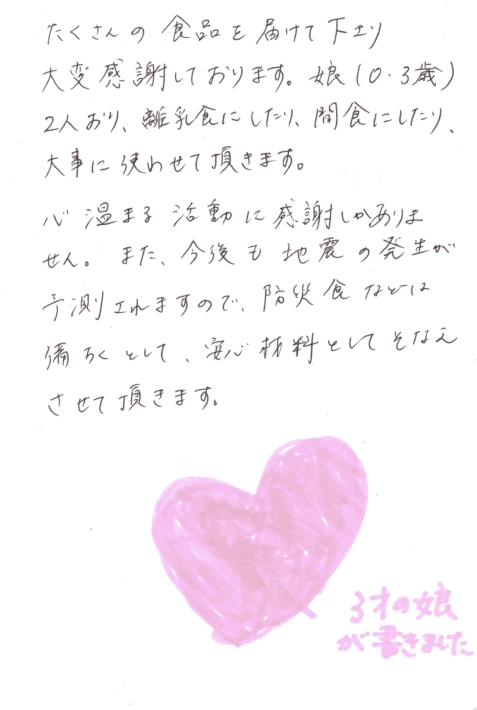 たくさんの食品を届けて下さり
大変感謝しております。娘(0・3歳)
2人おり、離乳食にしたり、間食にしたり、
大事に使わせて頂きます。
心温まる活動に感謝しかありま
せん。また、今後も地震の発生が
予測されますので、防災食などは
備ちくとして、安心材料としてそなえ
させて頂きます。
3才の娘
が書きました